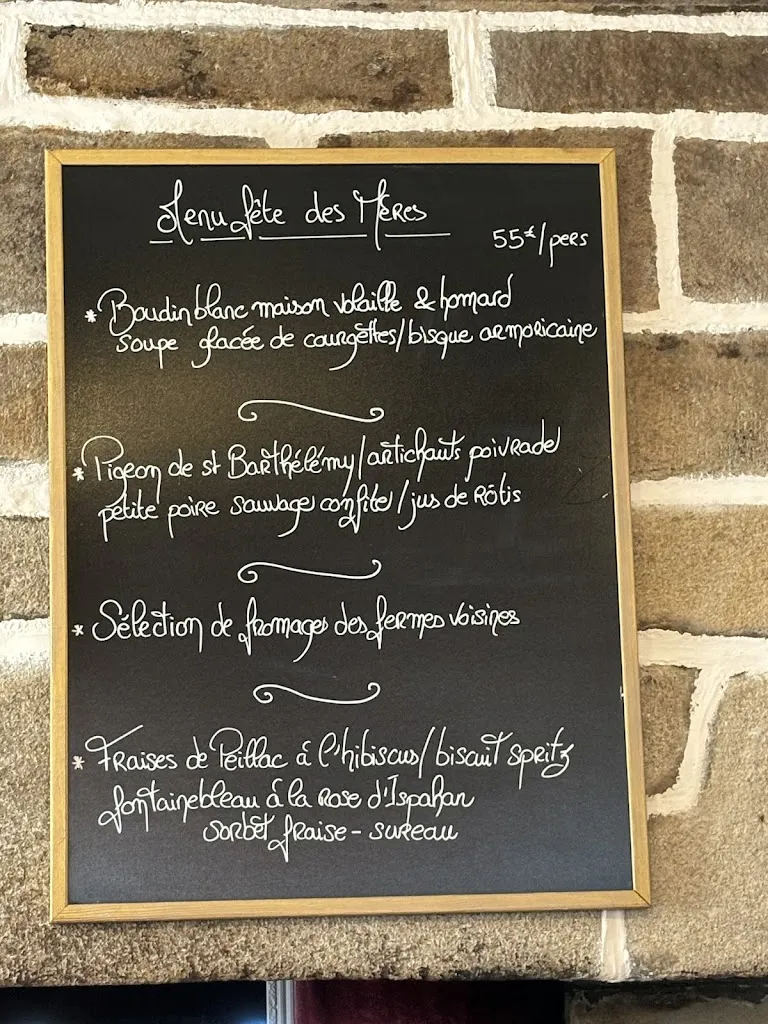 Menu fête des Mères
55€/pers
* Boudin blanc maison volaille & homard
soupe glacée de courgettes/bisque armoricaine
* Pigeon de st Barthélémy/artichauts poivrade
petite poire sauvage confite/jus de Rôtis
* Sélection de fromages des fermes voisines
* Fraises de Peillac à l'hibiscus/biscuit spritz
fontainebleau à la rose d'Ispahan
sorbet fraise - sureau